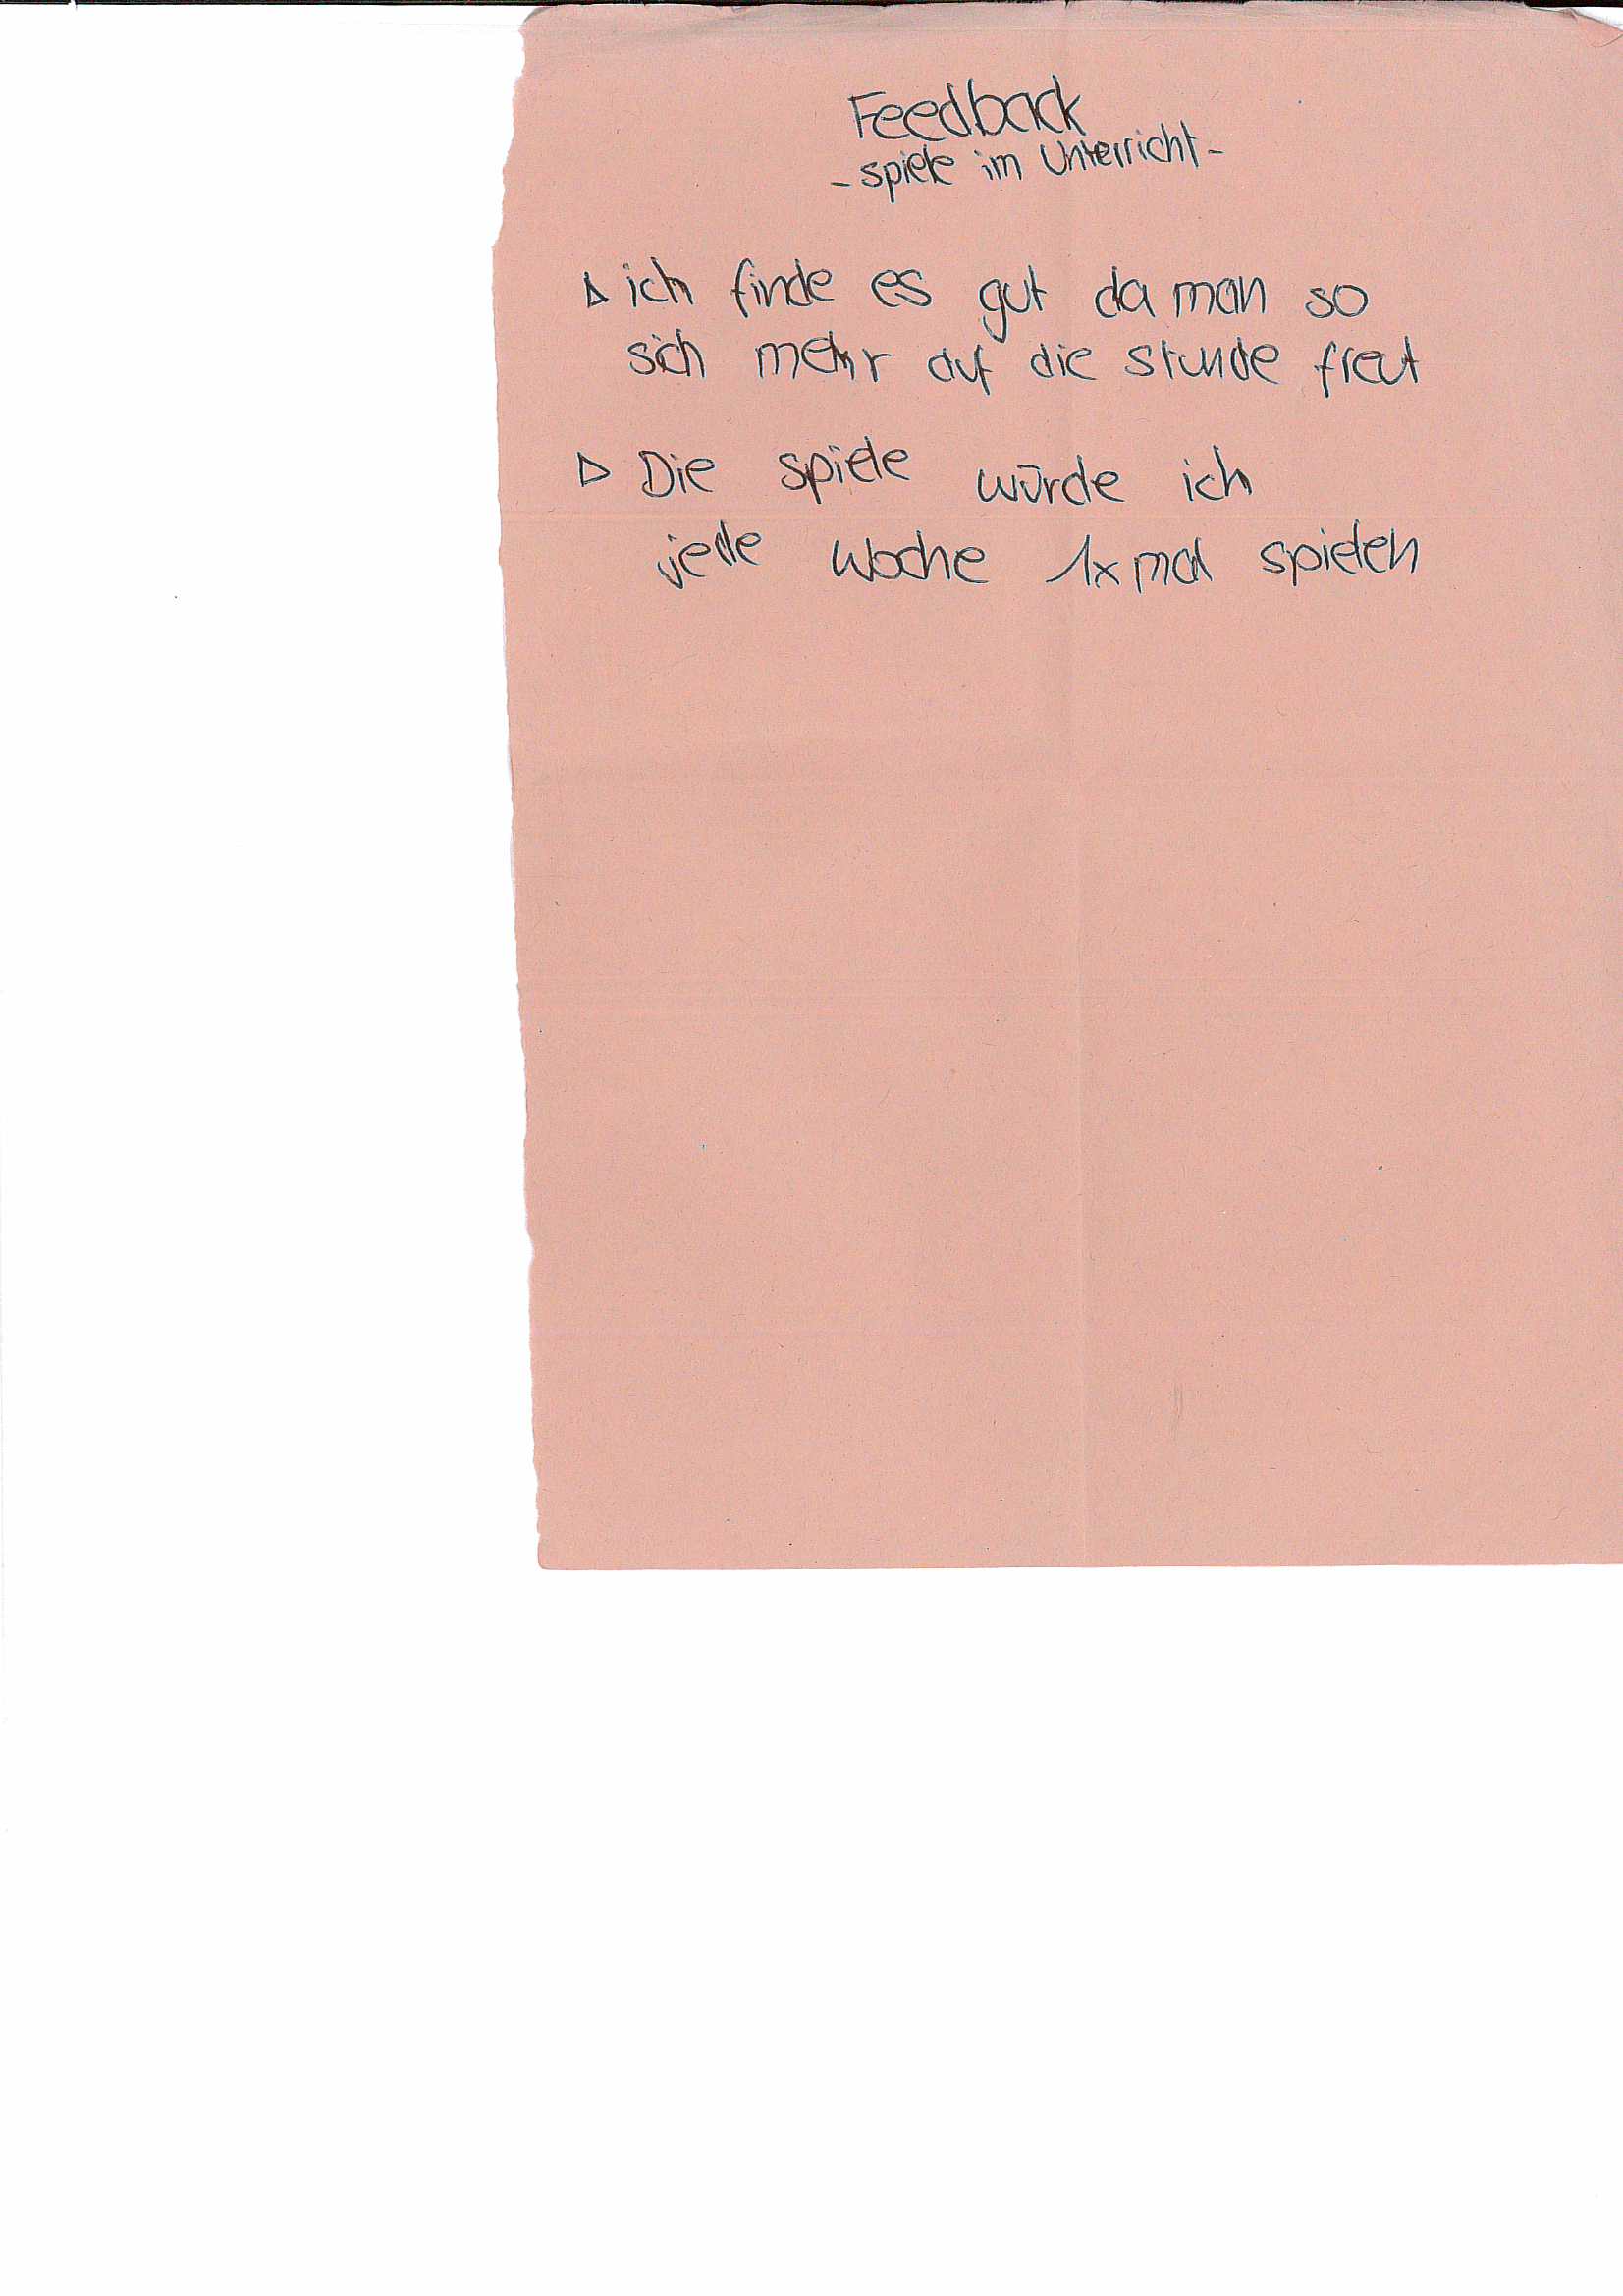 Feedback
- spiele im Unterricht -
▷ ich finde es gut da man so
sich mehr auf die stunde freut
▷ Die spiele würde ich
jede woche 1x mal spielen